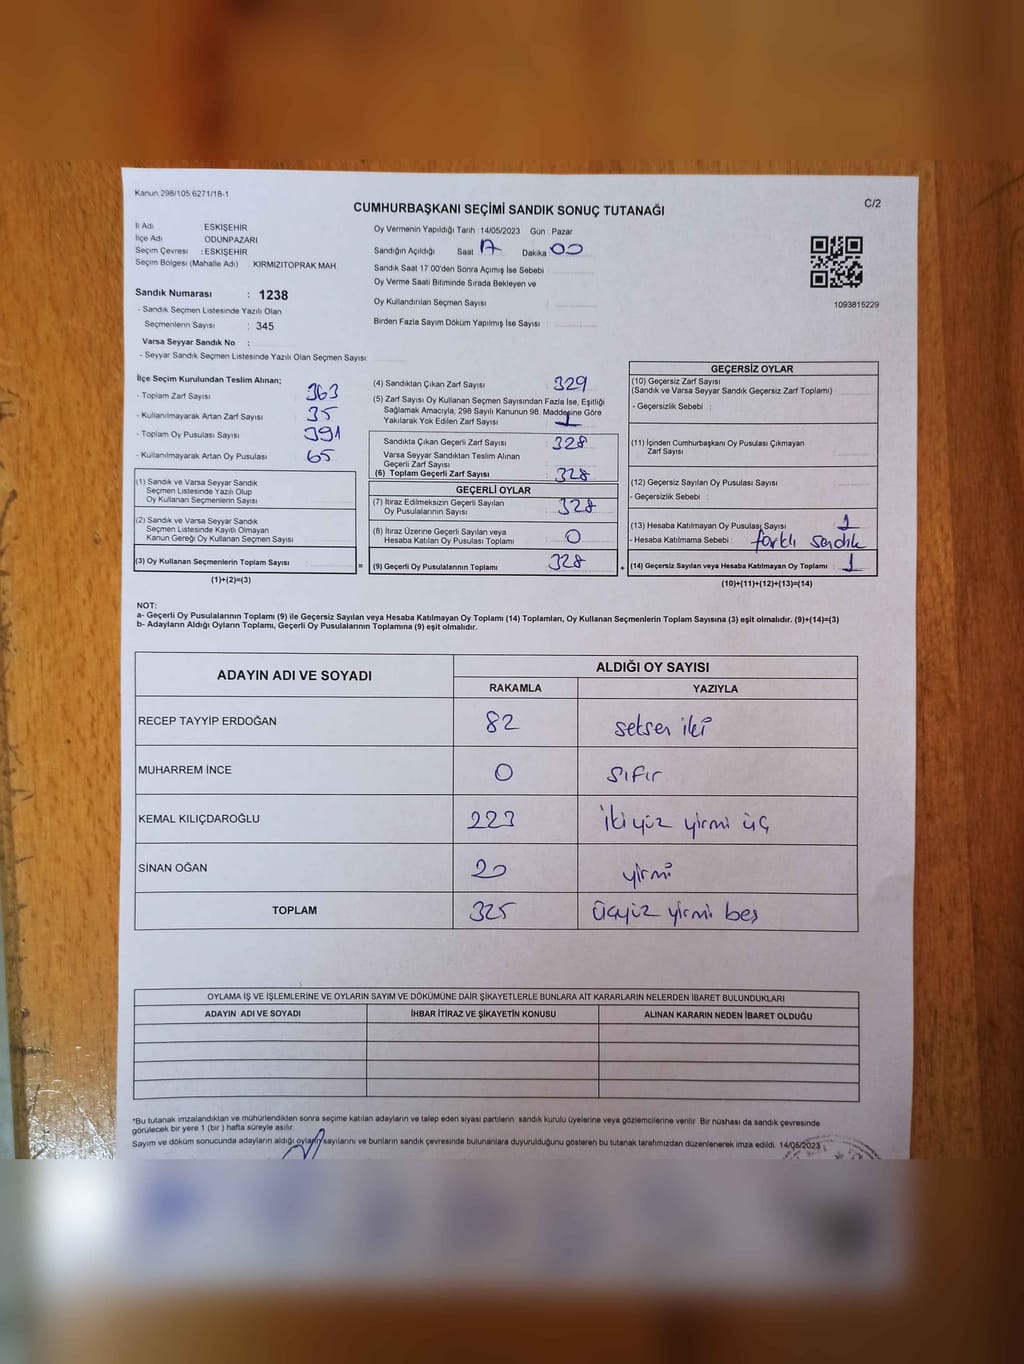 Kanun 298/105 6271/18-1
CUMHURBAŞKANI SEÇİMİ SANDIK SONUÇ TUTANAĞI
C/2
İl Adı ESKİŞEHİR
İlçe Adı ODUNPAZARI
Seçim Çevresi : ESKİŞEHİR
Seçim Bölgesi (Mahalle Adı) KIRMIZITOPRAK MAH
Sandık Numarası : 1238
- Sandık Seçmen Listesinde Yazılı Olan
Seçmenlerin Sayısı : 345
Varsa Seyyar Sandık No :
- Seyyar Sandık Seçmen Listesinde Yazılı Olan Seçmen Sayısı
Oy Vermenin Yapıldığı Tarih 14/05/2023 Gün Pazar
Sandığın Açıldığı Saat 17 Dakika 00
Sandık Saat 17:00'den Sonra Açımış İse Sebebi
Oy Verme Saati Bitiminde Sırada Bekleyen ve
Oy Kullandırılan Seçmen Sayısı
Birden Fazla Sayım Döküm Yapılmış İse Sayısı
1093815229
İlçe Seçim Kurulundan Teslim Alınan;
- Toplam Zarf Sayısı 363
- Kullanılmayarak Artan Zarf Sayısı 35
- Toplam Oy Pusulası Sayısı 391
- Kullanılmayarak Artan Oy Pusulası 65
(1) Sandık ve Varsa Seyyar Sandık
Seçmen Listesinde Yazılı Olup
Oy Kullanan Seçmenlerin Sayısı
(2) Sandık ve Varsa Seyyar Sandık
Seçmen Listesinde Kayıtlı Olmayan
Kanun Gereği Oy Kullanan Seçmen Sayısı
(3) Oy Kullanan Seçmenlerin Toplam Sayısı
(1)+(2)=(3)
=
(4) Sandıktan Çıkan Zarf Sayısı 329
(5) Zarf Sayısı Oy Kullanan Seçmen Sayısından Fazla İse, Eşitliği
Sağlamak Amacıyla, 298 Sayılı Kanunun 98. Maddesine Göre
Yakılarak Yok Edilen Zarf Sayısı 1
Sandıkta Çıkan Geçerli Zarf Sayısı 328
Varsa Seyyar Sandıktan Teslim Alınan
Geçerli Zarf Sayısı
(6) Toplam Geçerli Zarf Sayısı 328
GEÇERLİ OYLAR
(7) İtiraz Edilmeksizin Geçerli Sayılan
Oy Pusulalarının Sayısı 328
(8) İtiraz Üzerine Geçerli Sayılan veya
Hesaba Katılan Oy Pusulası Toplamı 0
(9) Geçerli Oy Pusulalarının Toplamı 328
+
GEÇERSİZ OYLAR
(10) Geçersiz Zarf Sayısı
(Sandık ve Varsa Seyyar Sandık Geçersiz Zarf Toplamı)
- Geçersizlik Sebebi :
(11) İçinden Cumhurbaşkanı Oy Pusulası Çıkmayan
Zarf Sayısı
(12) Geçersiz Sayılan Oy Pusulası Sayısı
- Geçersizlik Sebebi :
(13) Hesaba Katılmayan Oy Pusulası Sayısı 1
- Hesaba Katılmama Sebebi : farklı sandık
(14) Geçersiz Sayılan veya Hesaba Katılmayan Oy Toplamı : 1
(10)+(11)+(12)+(13)=(14)
NOT:
a- Geçerli Oy Pusulalarının Toplamı (9) ile Geçersiz Sayılan veya Hesaba Katılmayan Oy Toplamı (14) Toplamları, Oy Kullanan Seçmenlerin Toplam Sayısına (3) eşit olmalıdır. (9)+(14)=(3)
b- Adayların Aldığı Oyların Toplamı, Geçerli Oy Pusulalarının Toplamına (9) eşit olmalıdır.
ADAYIN ADI VE SOYADI ALDIĞI OY SAYISI
RAKAMLA YAZIYLA
RECEP TAYYİP ERDOĞAN 82 seksen iki
MUHARREM İNCE 0 sıfır
KEMAL KILIÇDAROĞLU 223 iki yüz yirmi üç
SİNAN OĞAN 20 yirmi
TOPLAM 325 üçyüz yirmi beş
OYLAMA İŞ VE İŞLEMLERİNE VE OYLARIN SAYIM VE DÖKÜMÜNE DAİR ŞİKAYETLERLE BUNLARA AİT KARARLARIN NELERDEN İBARET BULUNDUKLARI
ADAYIN ADI VE SOYADI İHBAR İTİRAZ VE ŞİKAYETİN KONUSU ALINAN KARARIN NEDEN İBARET OLDUĞU
*Bu tutanak imzalandıktan ve mühürlendikten sonra seçime katılan adayların ve talep eden siyasi partilerin sandık kurulu üyelerine veya gözlemcilerine verilir. Bir nüshası da sandık çevresinde
görülecek bir yere 1 (bir ) hafta süreyle asılır.
Sayım ve döküm sonucunda adayların aldığı oyların sayılarını ve bunların sandık çevresinde bulunanlara duyurulduğunu gösteren bu tutanak tarafımızdan düzenlenerek imza edildi. 14/05/2023